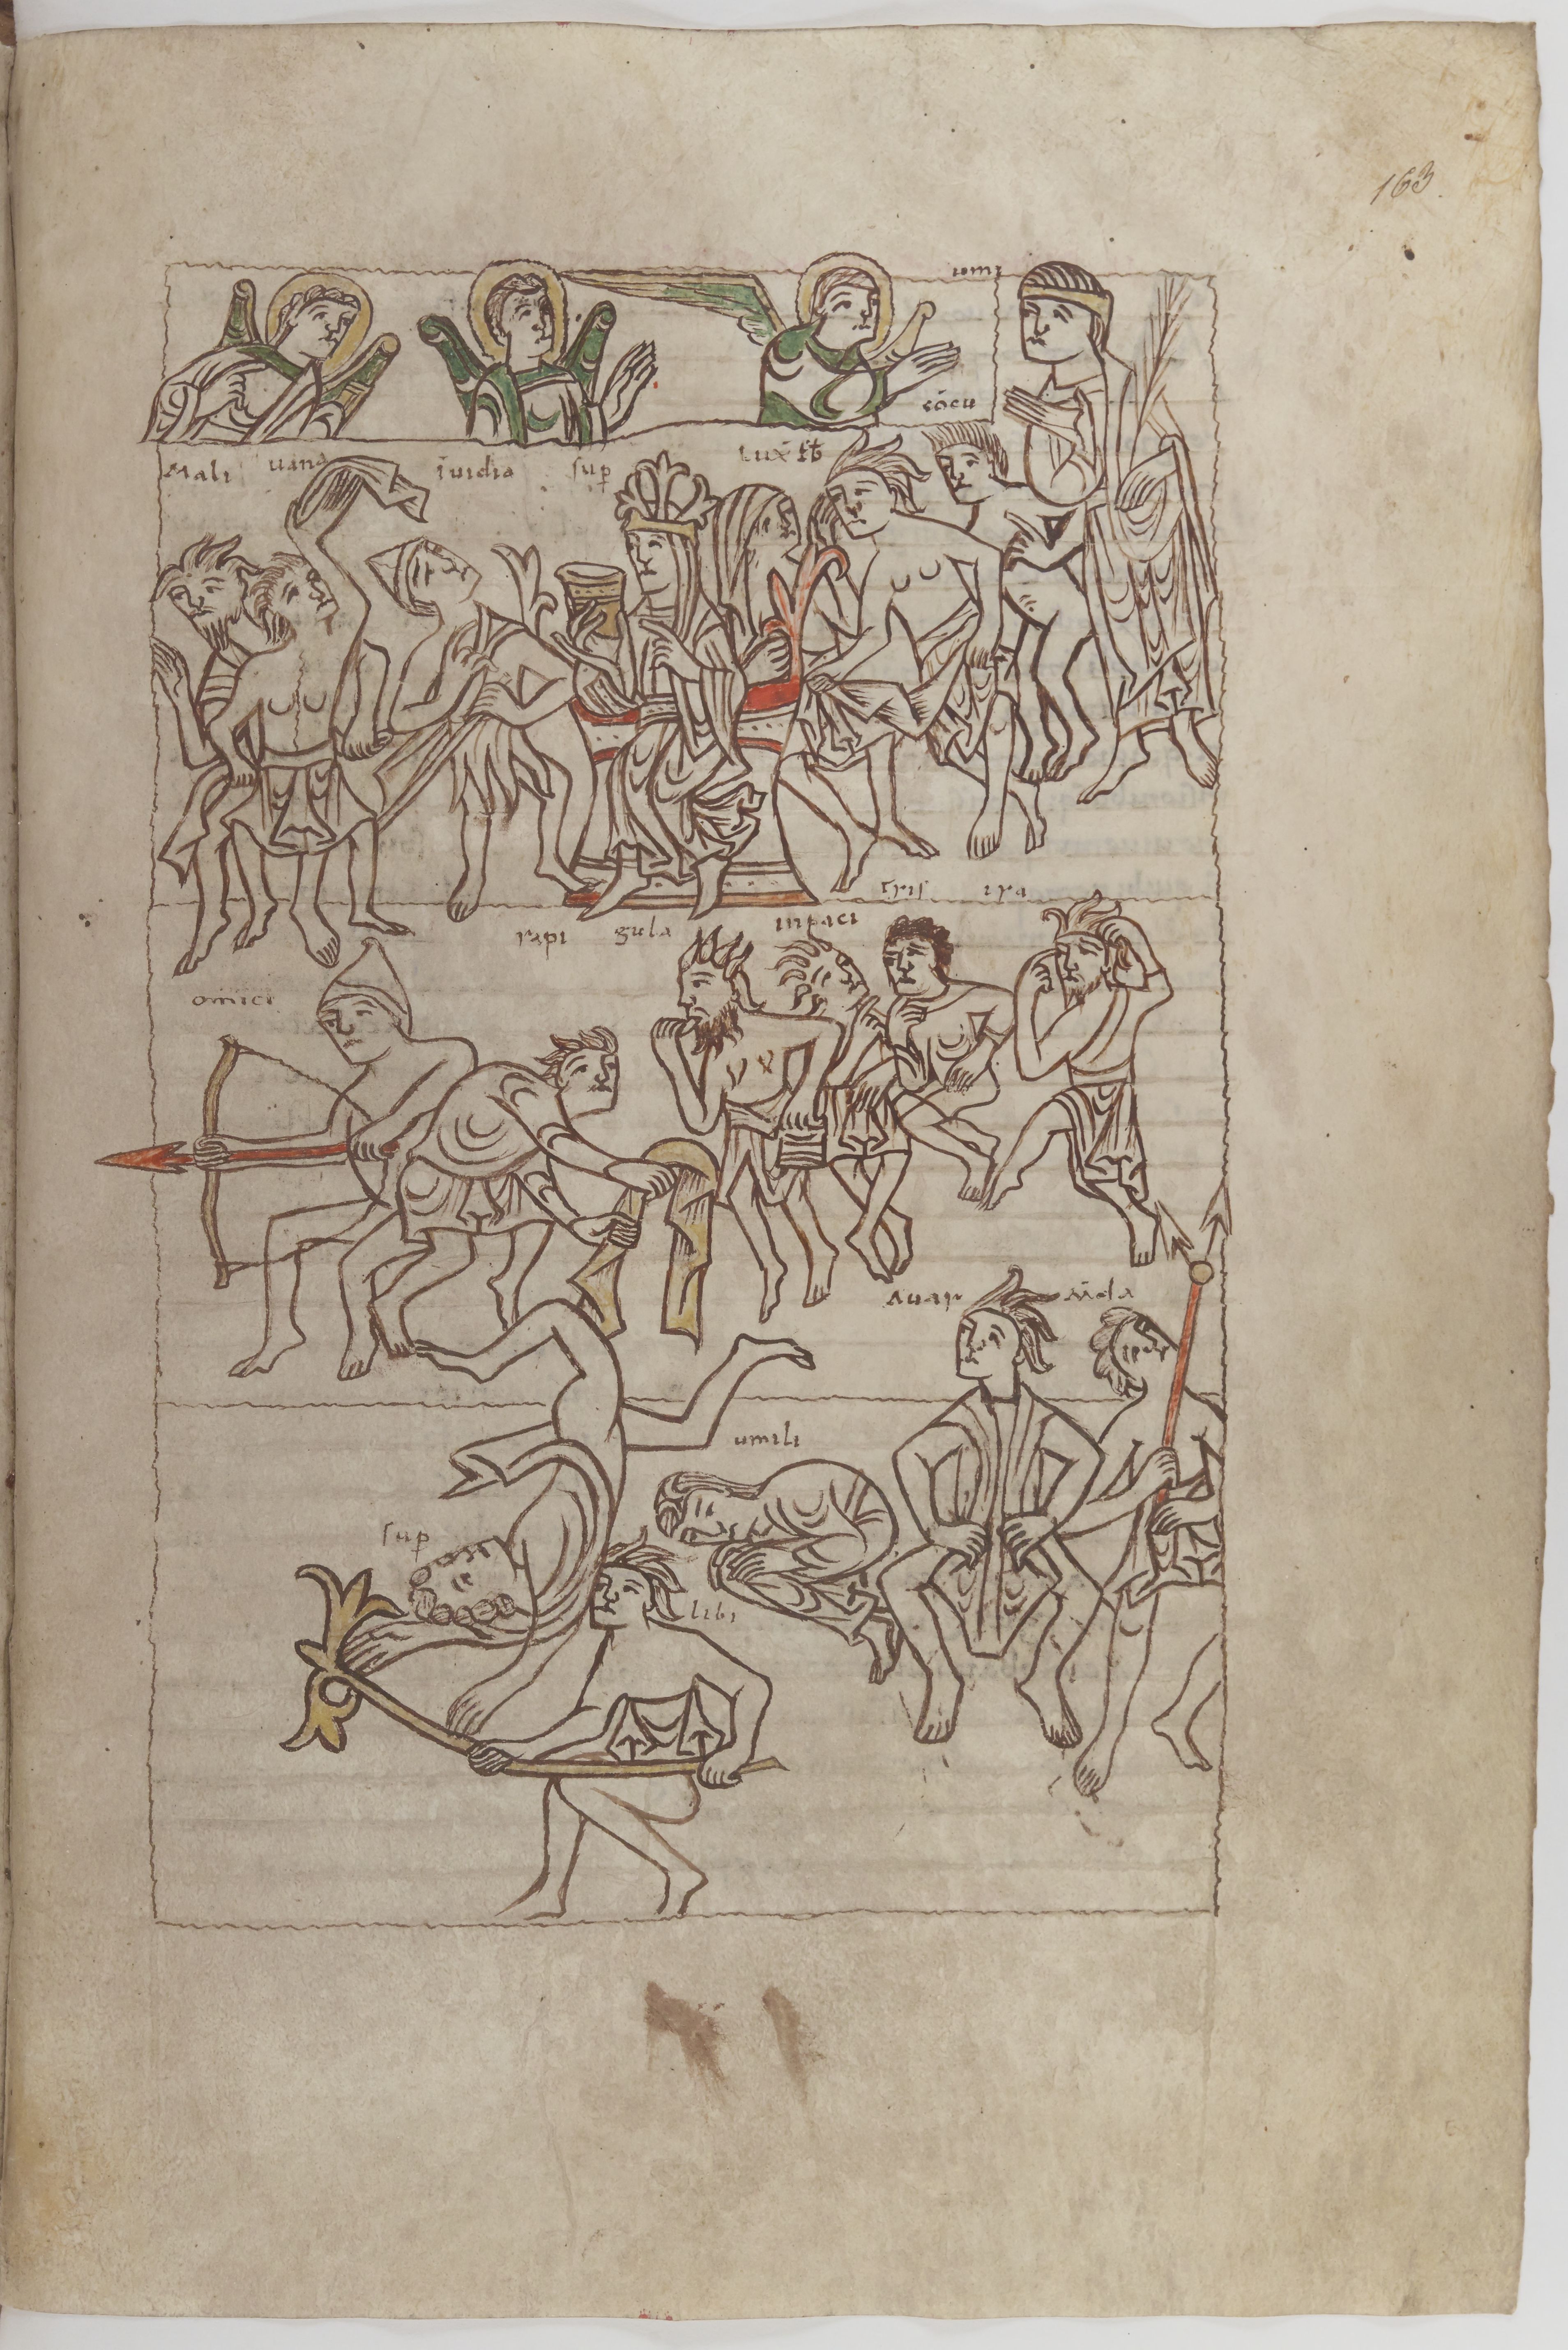 163.
cōcu
Mali uana īuidia sup
tris ira
rapi gula inpaci
omici
auar
umili
sup
libi